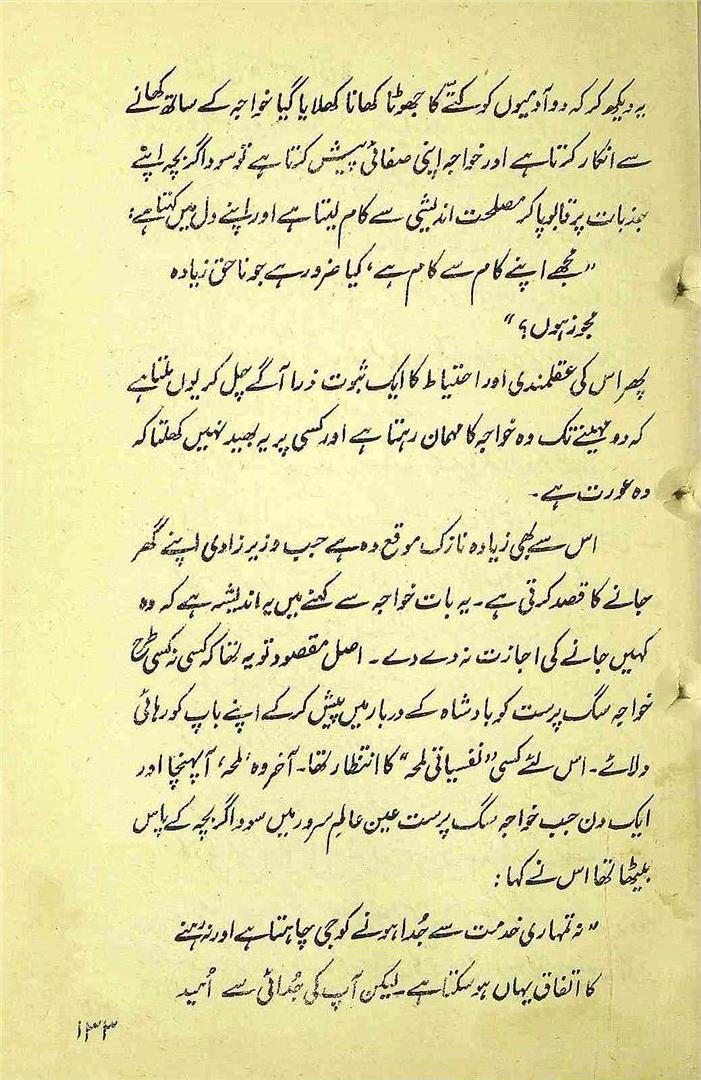 یہ دیکھ کر کہ دو آدمیوں کو کتّے کا جھوٹا کھانا کھلایا گیا خواجہ کے ساتھ کھانے
سے انکار کرتا ہے اور خواجہ اپنی صفائی پیش کرتا ہے تو سوداگر بچہ اپنے
جذبات پر قابو پا کر مصلحت اندیشی سے کام لیتا ہے اور اپنے دل میں کہتا ہے:
"مجھے اپنے کام سے کام ہے، کیا ضرور ہے جو ناحق زیادہ
مجوز ہوں؟"
پھر اس کی عقلمندی اور احتیاط کا ایک ثبوت ذرا آگے چل کر یوں ملتا ہے
کہ دو مہینے تک وہ خواجہ کا مہمان رہتا ہے اور کسی پر یہ بھید نہیں کھلتا کہ
وہ عورت ہے۔
اس سے بھی زیادہ نازک موقع وہ ہے جب وزیر زادی اپنے گھر
جانے کا قصد کرتی ہے۔ یہ بات خواجہ سے کہنے میں یہ اندیشہ ہے کہ وہ
کہیں جانے کی اجازت نہ دے دے۔ اصل مقصود تو یہ تھا کہ کسی نہ کسی طرح
خواجہ سگ پرست کو بادشاہ کے دربار میں پیش کر کے اپنے باپ کو رہائی
دلائے۔ اس لئے کسی "نفسیاتی لمحہ" کا انتظار تھا۔ آخر وہ 'لمحہ' آ پہنچا اور
ایک دن جب خواجہ سگ پرست عین عالمِ سرور میں سوداگر بچہ کے پاس
بیٹھا تھا اس نے کہا:
"نہ تمہاری خدمت سے جُدا ہونے کو جی چاہتا ہے اور نہ رہنے
کا اتفاق یہاں ہو سکتا ہے۔ لیکن آپ کی جُدائی سے اُمید
۱۳۳